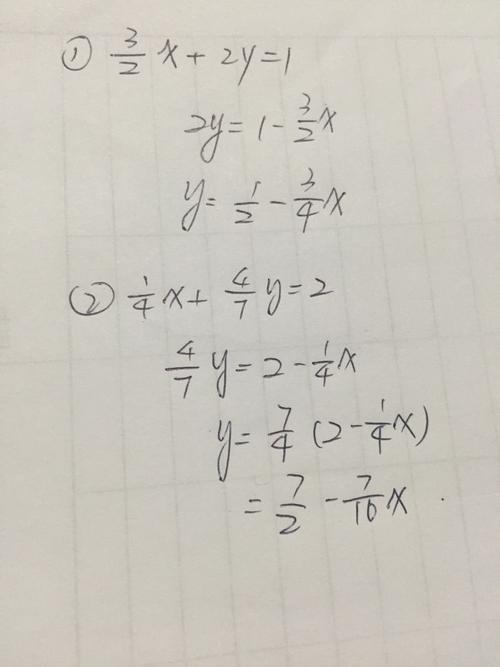 ① 3/2 x + 2y = 1
2y = 1 - 3/2 x
y = 1/2 - 3/4 x
② 1/4 x + 4/7 y = 2
4/7 y = 2 - 1/4 x
y = 7/4 (2 - 1/4 x)
= 7/2 - 7/16 x .